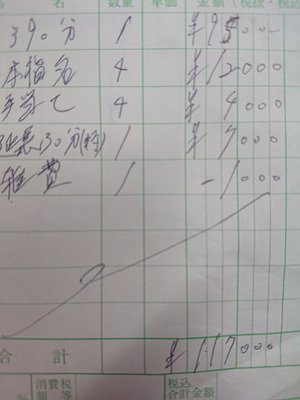 名 数量 単価 金額(税抜・税
390分 1 ¥95000
本指名 4 ¥12000
手当て 4 ¥4000
延長30分 1 ¥7000
雑費 1 -1000
合計 ¥117000
% 消費税額等 税込合計金額